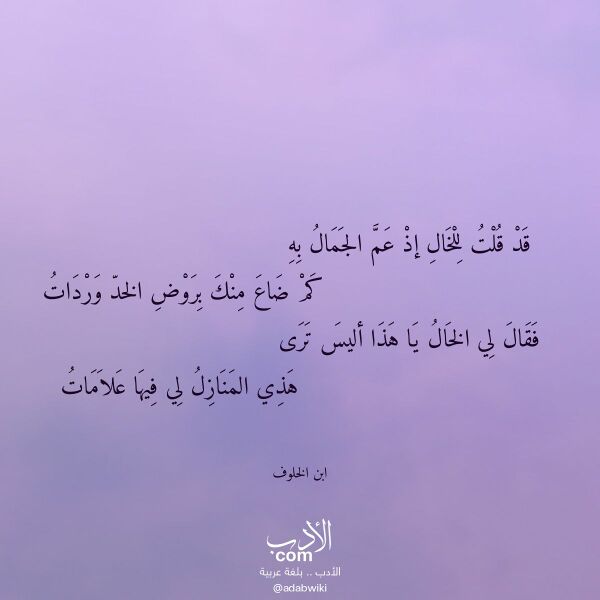 قَدْ قُلْتُ لِلْخَالِ إذْ عَمَّ الجَمَالُ بِهِ
كَمْ ضَاعَ مِنْكَ بِرَوْضِ الخدّ وَرْدَاتُ
فَقَالَ لِي الخَالُ يَا هَذَا أليسَ تَرَى
هَذِي المَنَازِلُ لِي فِيهَا عَلاَمَاتُ
ابن الخلوف
الأدب
com
الأدب .. بلغة عربية
@adabwiki